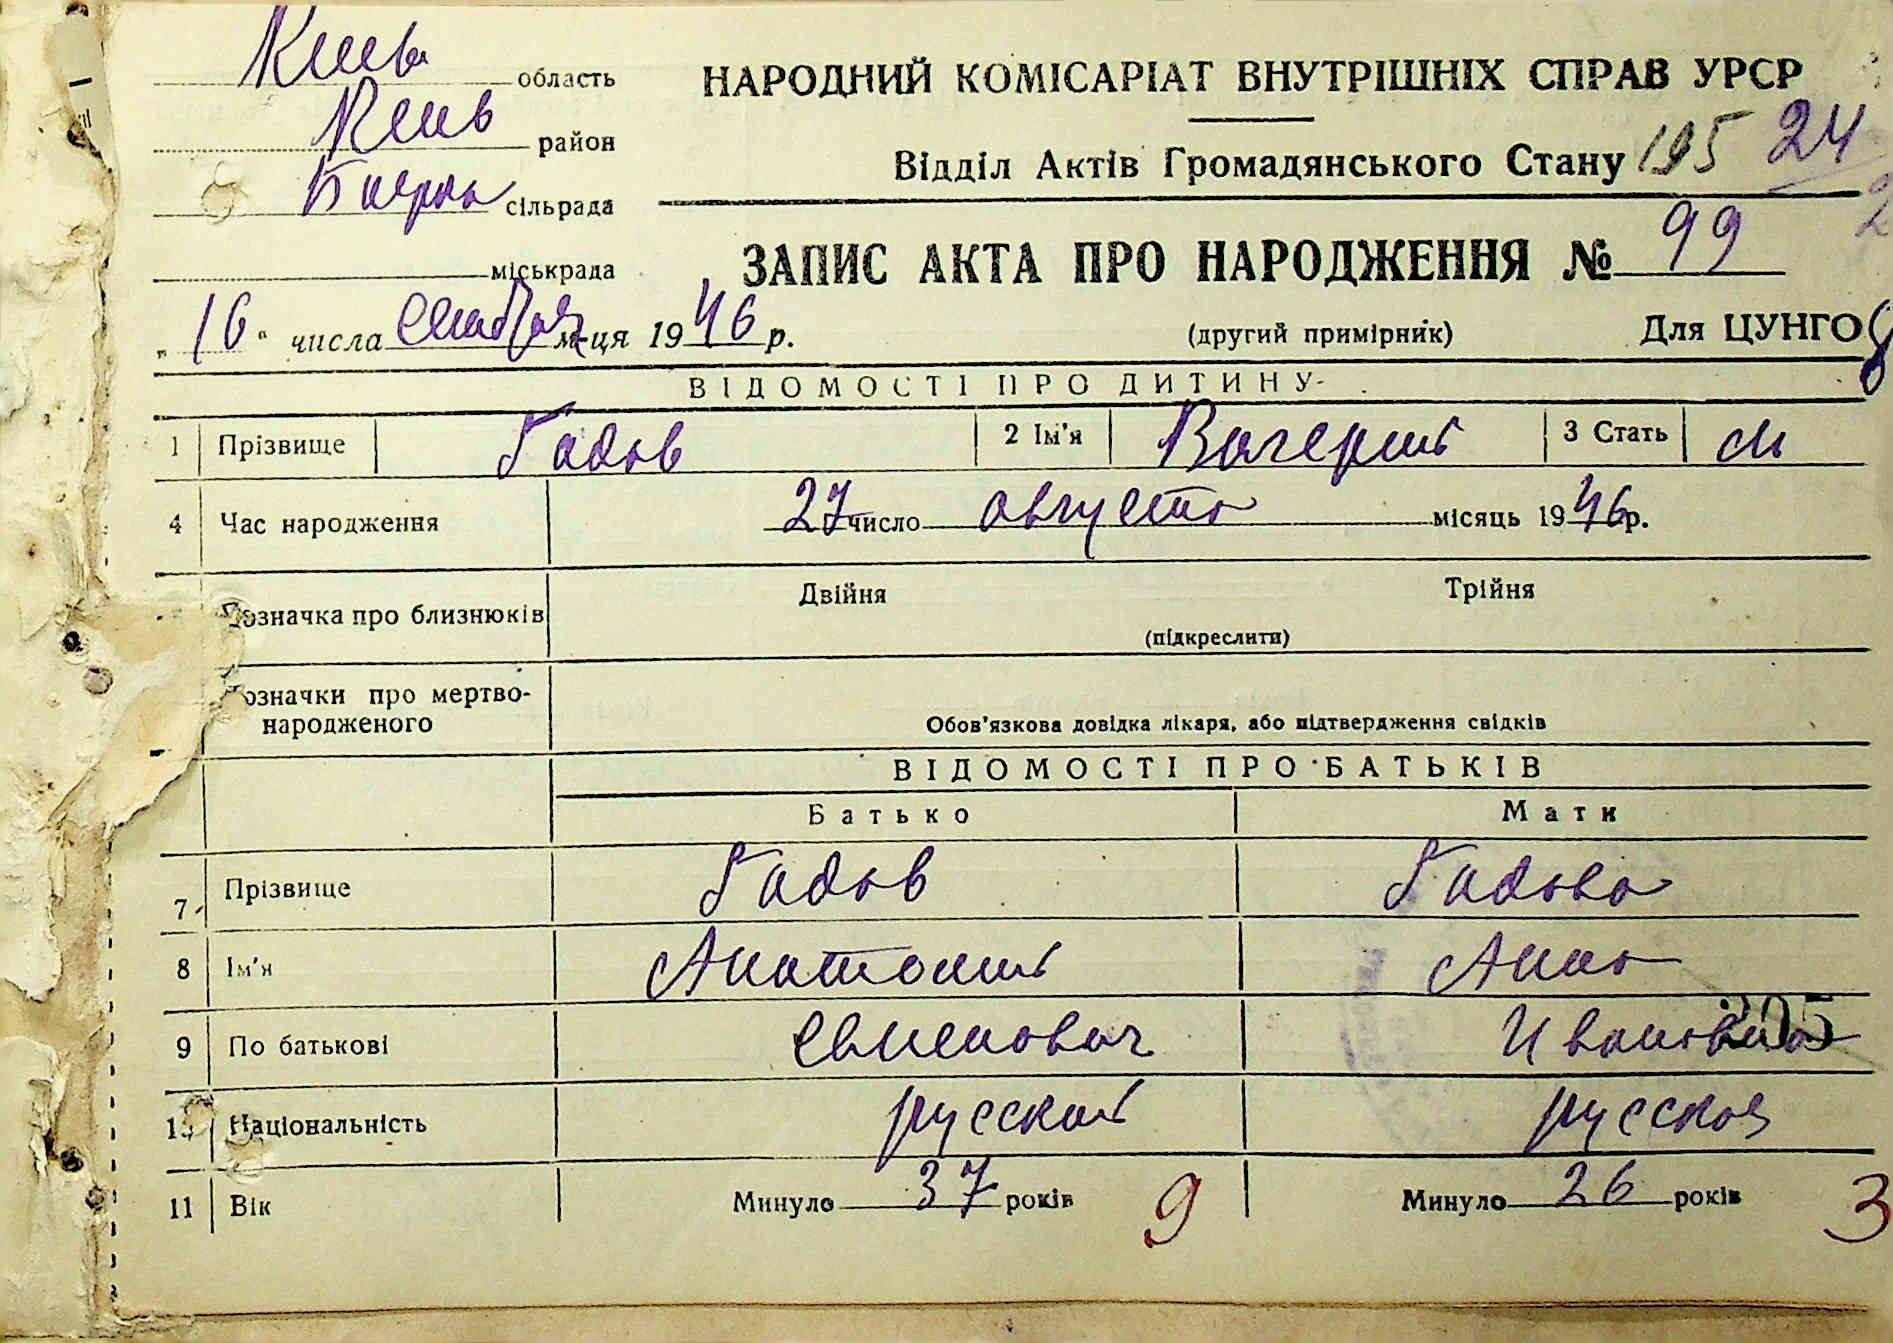 Киев область
Киев район
Боярка сільрада
міськрада
НАРОДНИЙ КОМІСАРІАТ ВНУТРІШНІХ СПРАВ УРСР
Відділ Актів Громадянського Стану 195 24
ЗАПИС АКТА ПРО НАРОДЖЕННЯ № 99
„16“ числа сентября м-ця 1946 р.
(другий примірник) Для ЦУНГО
ВІДОМОСТІ ПРО ДИТИНУ
1 Прізвище Гадов 2 Ім'я Валерий 3 Стать м
4 Час народження 27 число августа місяць 1946 р.
Позначка про близнюків Двійня Трійня
(підкреслити)
Позначки про мертво-
народженого Обов'язкова довідка лікаря, або підтвердження свідків
ВІДОМОСТІ ПРО БАТЬКІВ
Батько Мати
7 Прізвище Гадов Гадова
8 Ім'я Анатолий Анна
9 По батькові Ивановна
205
10 Національність русский русская
11 Вік Минуло 37 років 9 Минуло 26 років 3